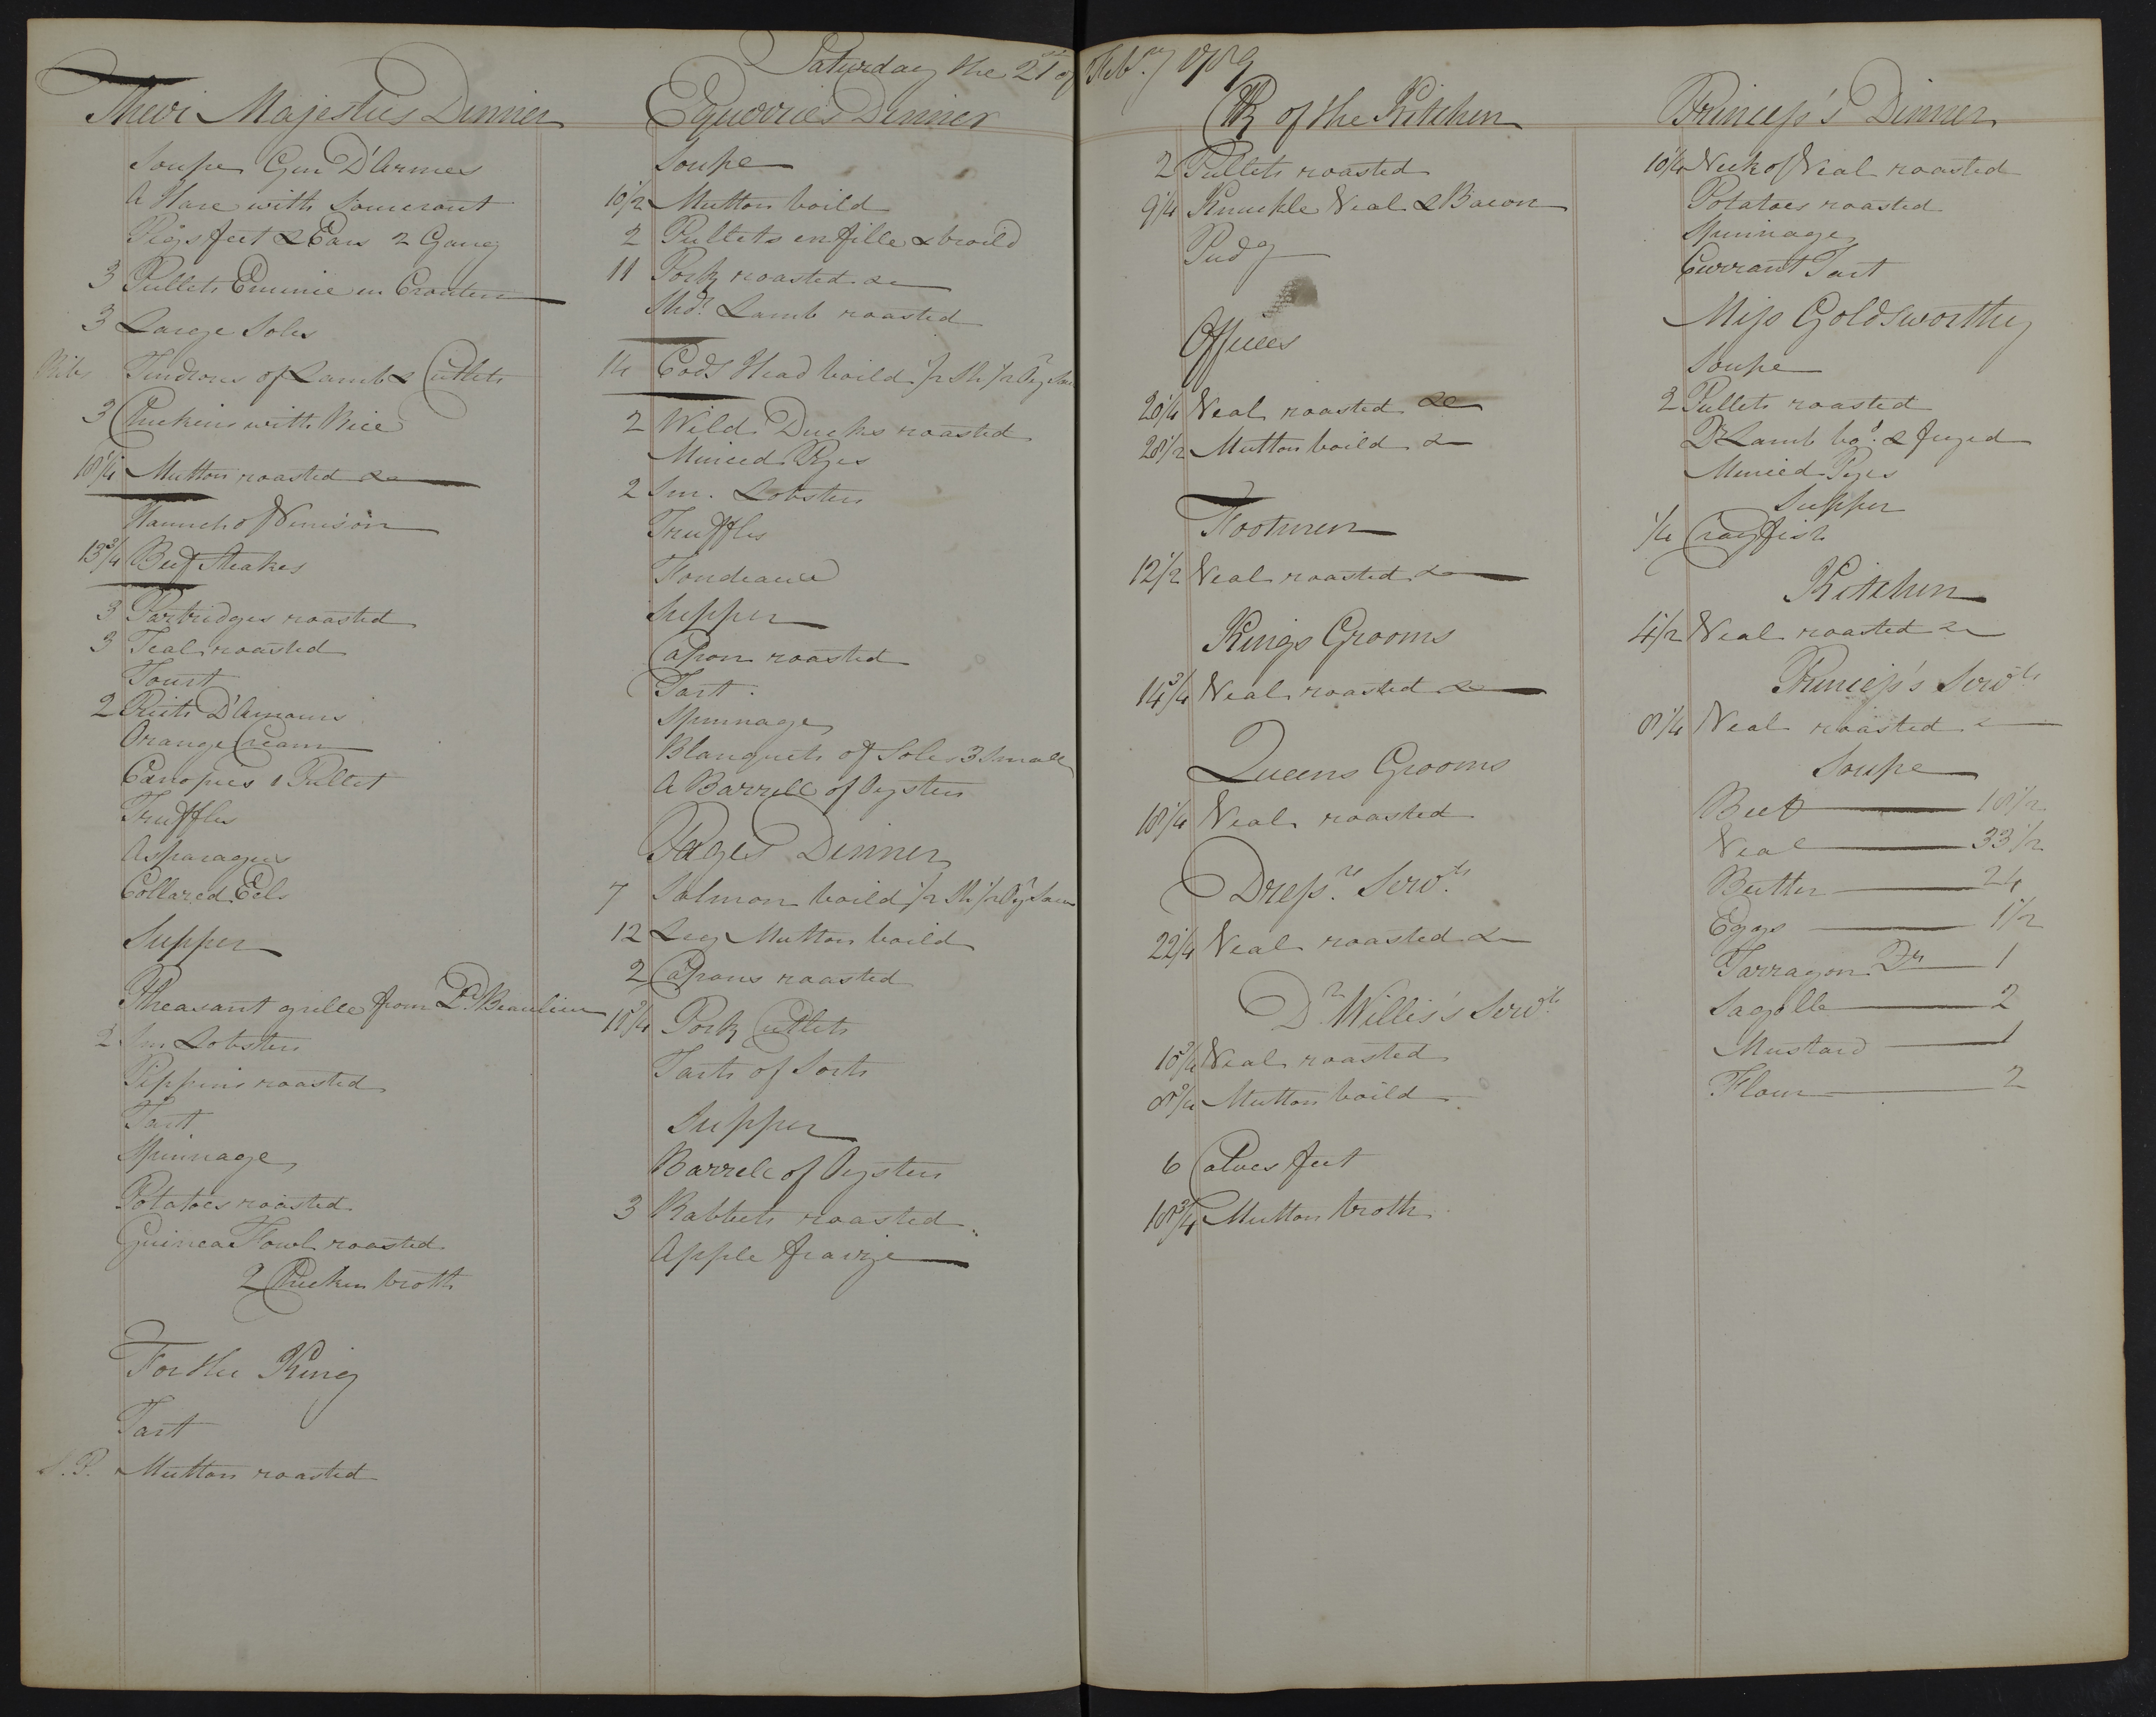 Saturday the 21st of Feby 1789
Their Majesties Dinner
Soupe Gen D'Armes
A Hare with Sourcrout
Pigs feet & Ears 2 Gang
3 Pullets Emmie en Crouten
3 Large Soles
Ribs Tendrons of Lamb & Cutlets
3 Chickins with Rice
18 1/4 Mutton roasted &c
Haunch of Venison
13 3/4 Beef Steakes
3 Partridges roasted
3 Teal roasted
Tourt
2 Puits D'Amours
Orange Cream
Canopies 1 Pullet
Truffles
Asparagus
Collared Eels
Supper
Pheasant grille from Ld. Beaulieu
2 Sm Lobsters
Pippins roasted
Tart
Spinnage
Potatoes roasted
Guinea Fowl roasted
2 Chicken broth
For the King
Tart
S. P. Mutton roasted
Equorries Dinner
Soupe
16 1/2 Mutton boild
2 Pullets en fille & broild
11 Pork roasted &c
Lamb roasted
14 Cods Head boild 1/2 Sh 1/2 Oyr Sau
2 Wild Ducks roasted
Minced Pyes
2 Sm. Lobsters
Truffles
Fondeaux
Supper
Capon roasted
Tart
Spinnage
Blanquets of Soles 3 Small
A Barrell of Oysters
Pages Dinner
7 Salmon boild 1/2 Sh 1/2 Oyr Sau
12 Leg Mutton boild
2 Capons roasted
11 3/4 Pork Cutlets
Tarts of Sorts
Supper
Barrell of Oysters
3 Rabbets roasted
Apple fraize
Ck of the Kitchen
2 Pullets roasted
9 1/4 Knuckle Veal & Bacon
Pudg
Offices
20 1/4 Veal roasted &c
28 1/2 Mutton boild &c
Footmen
12 1/2 Veal roasted &c
Kings Grooms
14 3/4 Veal roasted &c
Queens Grooms
18 1/4 Veal roasted
Dressrs Servts
22 1/4 Veal roasted &c
Dr Willis's Servts
10 3/4 Veal roasted
8 3/4 Mutton boild
6 Calves feet
18 3/4 Mutton broth
Princess's Dinner
10 1/4 Neck of Veal roasted
Potatoes roasted
Spinnage
Currant Tart
Miss Goldsworthy
Soupe
2 Pullets roasted
Dr Lamb bod. & fryed
Minced Pyes
Supper
1/4 Crayfish
Kitchen
4 1/2 Veal roasted &c
Princess's Servts
8 1/4 Veal roasted &c
Soupe
Beef 18 1/2
Veal 33 1/2
Butter 24
Eggs 1 1/2
Tarragon Vr 1
Sagolle 2
Mustard 1
Flour 2